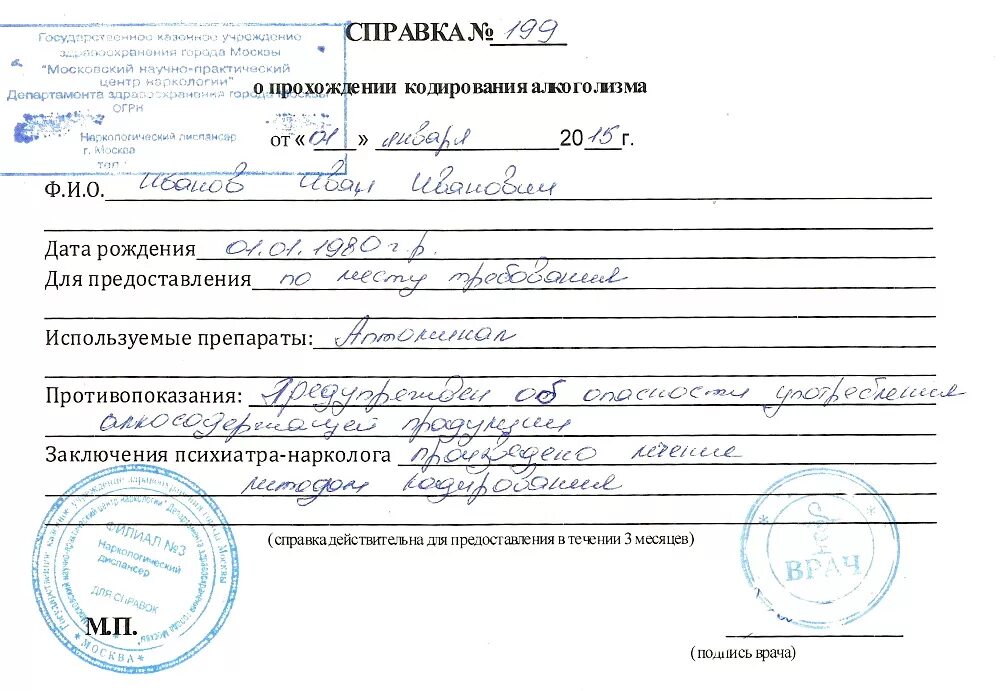 Государственное казенное учреждение
здравоохранения города Москвы
"Московский научно-практический
центр наркологии"
Департамента здравоохранения города Москвы
ОГРН
Наркологический диспансер
г. Москва
тел.
СПРАВКА № 199
о прохождении кодирования алкоголизма
от « 01 » января 2015 г.
Ф.И.О. Иванов Иван Иванович
Дата рождения 01.01.1980 г.р.
Для предоставления по месту требования
Используемые препараты: Аптоминал
Противопоказания: Предупрежден об опасности употребления
алкосодержащей продукции
Заключения психиатра-нарколога произведено лечение
методом кодирования
(справка действительна для предоставления в течении 3 месяцев)
ФИЛИАЛ №3
Наркологический
диспансер
ДЛЯ СПРАВОК
* МОСКВА *
М.П.
ВРАЧ
(подпись врача)